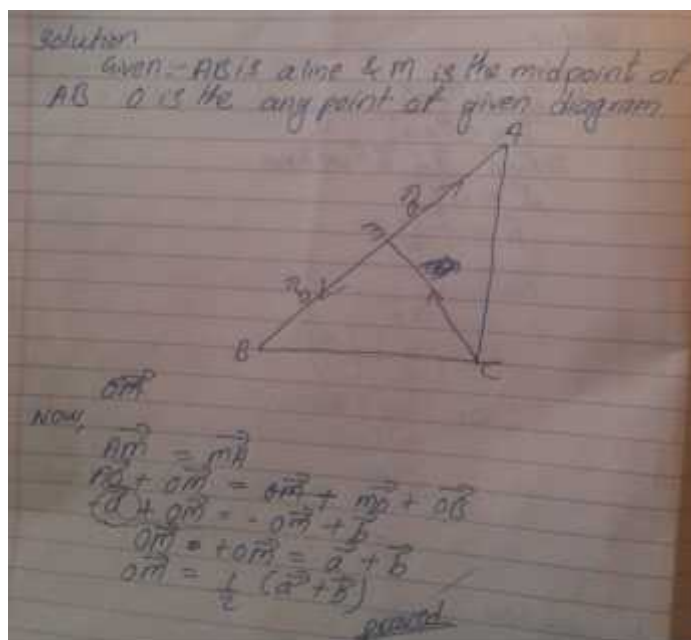 Solution
Given:- AB is a line & M is the midpoint of
AB O is the any point of given diagram.
A
B
C
OM
Now,
AM = MA
+ OM = + MO + OB
a + OM = - OM + b
OM = + OM = a + b
OM = 1/2 (a + b)
proved